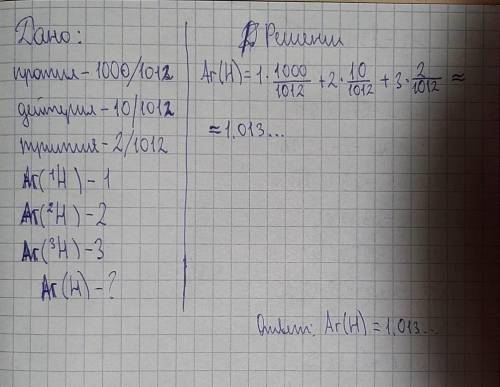 Дано:
протия - 1000/1012
дейтерия - 10/1012
трития - 2/1012
Ar(¹H) - 1
Ar(²H) - 2
Ar(³H) - 3
Ar(H) - ?
Решении
Ar(H) = 1 · 1000/1012 + 2 · 10/1012 + 3 · 2/1012 ≈
≈ 1,013...
Ответ: Ar(H) = 1,013...